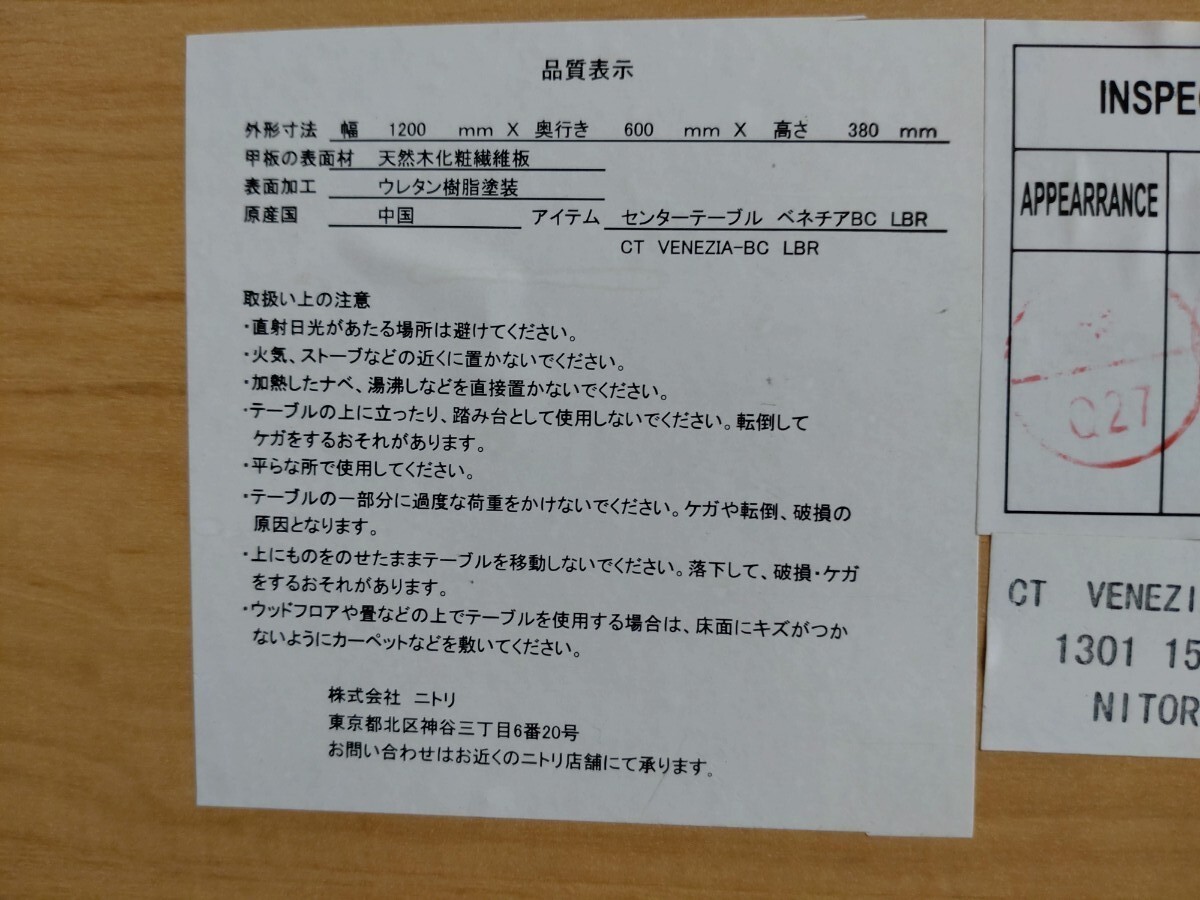 品質表示
外形寸法 幅 1200 mm X 奥行き 600 mm X 高さ 380 mm
甲板の表面材 天然木化粧繊維板
表面加工 ウレタン樹脂塗装
原産国 中国 アイテム センターテーブル ベネチアBC LBR
CT VENEZIA-BC LBR
取扱い上の注意
・直射日光があたる場所は避けてください。
・火気、ストーブなどの近くに置かないでください。
・加熱したナベ、湯沸しなどを直接置かないでください。
・テーブルの上に立ったり、踏み台として使用しないでください。転倒して
ケガをするおそれがあります。
・平らな所で使用してください。
・テーブルの一部分に過度な荷重をかけないでください。ケガや転倒、破損の
原因となります。
・上にものをのせたままテーブルを移動しないでください。落下して、破損・ケガ
をするおそれがあります。
・ウッドフロアや畳などの上でテーブルを使用する場合は、床面にキズがつか
ないようにカーペットなどを敷いてください。
株式会社 ニトリ
東京都北区神谷三丁目6番20号
お問い合わせはお近くのニトリ店舗にて承ります。
INSPE
APPEARRANCE
Q27
CT VENEZI
1301 15
NITOR